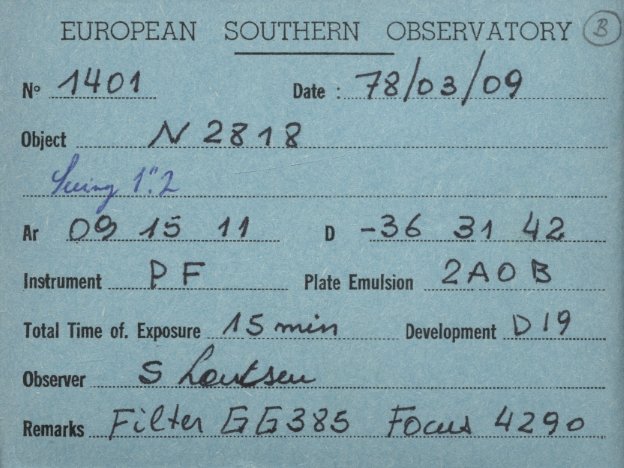 EUROPEAN SOUTHERN OBSERVATORY B
N° 1401 Date : 78/03/09
Object N 2818
Seeing 1".2
Ar 09 15 11 D -36 31 42
Instrument PF Plate Emulsion 2AOB
Total Time of. Exposure 15 min Development D19
Observer S Laustsen
Remarks Filter GG385 Focus 4290